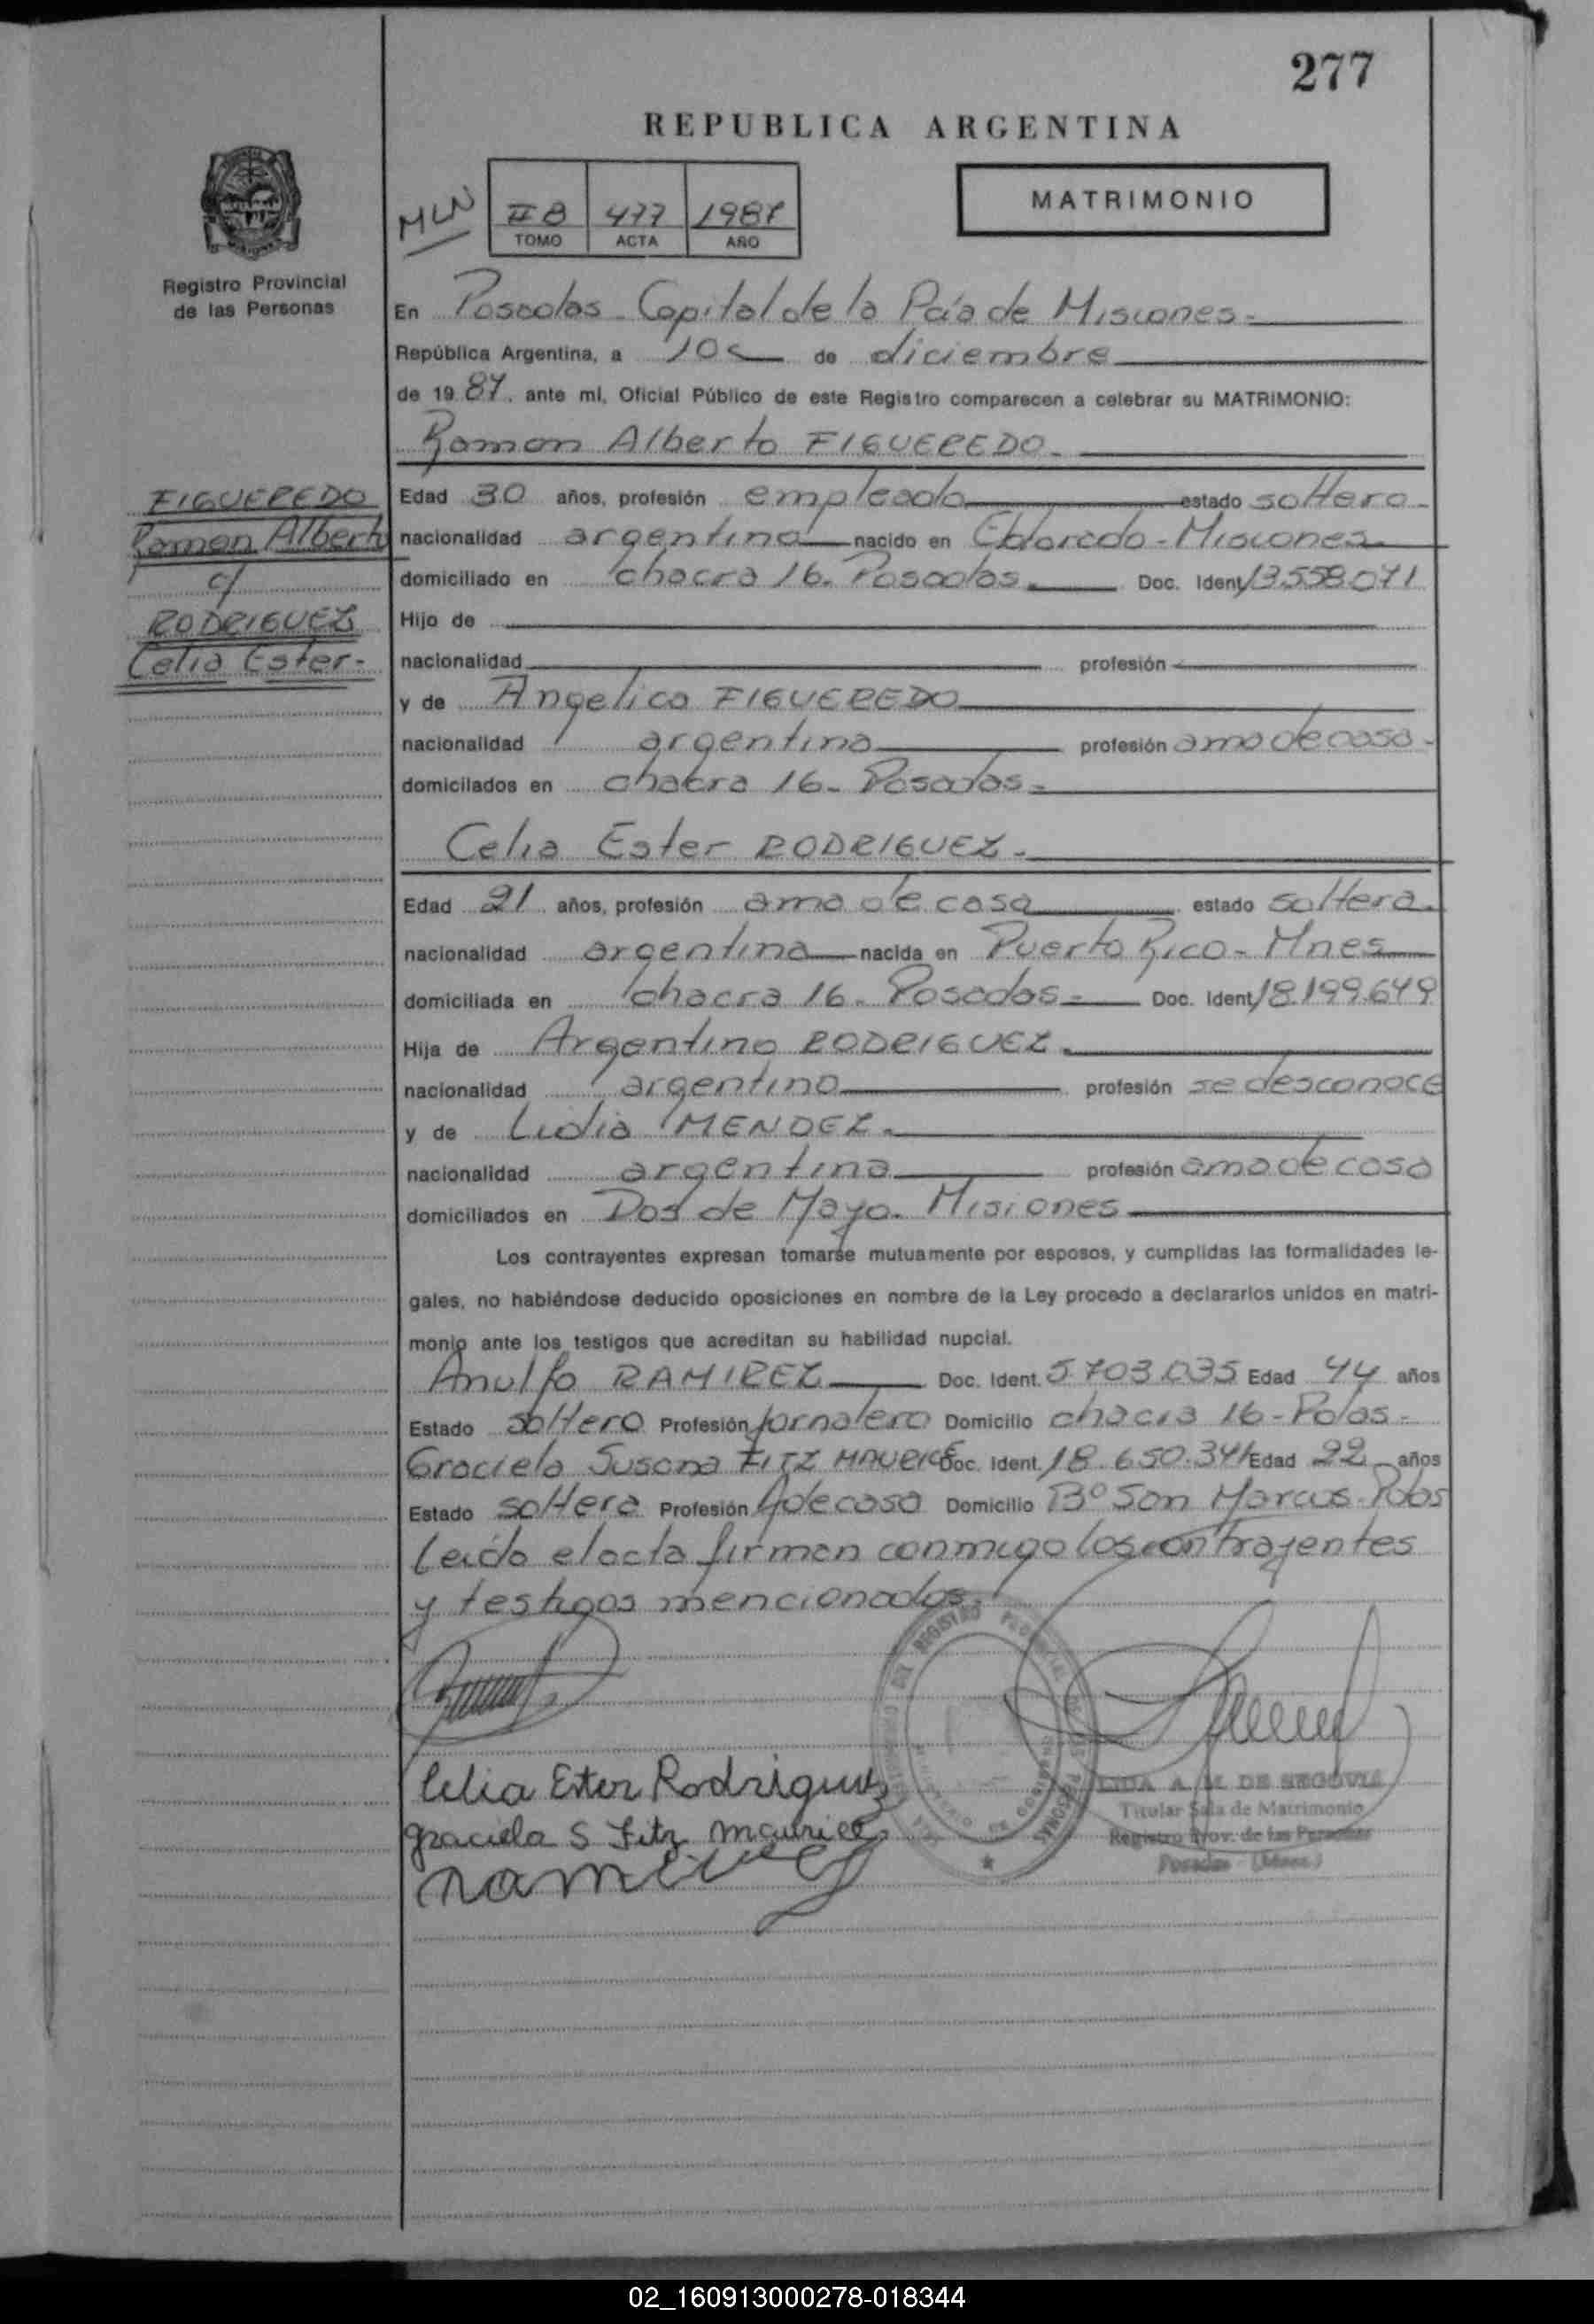 277
REPUBLICA ARGENTINA
MLN
II B 477 1987
TOMO ACTA AÑO
MATRIMONIO
Registro Provincial
de las Personas
En Posadas - Capital de la Pcia de Misiones -
República Argentina, a 10 de diciembre
de 19 87. ante mí, Oficial Público de este Registro comparecen a celebrar su MATRIMONIO:
Ramon Alberto FIGUEREDO -
FIGUEREDO
Ramon Alberto
c/
RODRIGUEZ
Celia Ester -
Edad 30 años, profesión empleado estado soltero -
nacionalidad argentina nacido en Eldorado - Misiones
domiciliado en chacra 16. Posadas - Doc. Ident. 13.558.071
Hijo de
nacionalidad profesión
y de Angelica FIGUEREDO
nacionalidad argentina profesión ama de casa -
domicilados en chacra 16 - Posadas -
Celia Ester RODRIGUEZ -
Edad 21 años, profesión ama de casa estado soltera.
nacionalidad argentina nacida en Puerto Rico - Mnes
domiciliada en chacra 16 - Posadas - Doc. Ident. 18.199.649
Hija de Argentino RODRIGUEZ -
nacionalidad argentino profesión se desconoce
y de Lidia MENDEZ -
nacionalidad argentina profesión ama de casa
domiciliados en Dos de Mayo - Misiones
Los contrayentes expresan tomarse mutuamente por esposos, y cumplidas las formalidades le-
gales, no habiéndose deducido oposiciones en nombre de la Ley procedo a declararlos unidos en matri-
monio ante los testigos que acreditan su habilidad nupcial.
Anulfo RAMIREZ Doc. Ident. 5.703.035 Edad 44 años
Estado soltero Profesión jornalero Domicilio chacra 16 - Pdas -
Graciela Susana FITZ MAURICE Doc. Ident. 18.650.341 Edad 22 años
Estado soltera Profesión A de casa Domicilio B° San Marcos - Pdas
Leída el acta firman conmigo los contrayentes
y testigos mencionados.
Celia Ester Rodriguez
Graciela S Fitz Maurice
Ramirez
LIDA A. M. DE SEGOVIA
Titular Sala de Matrimonio
Registro Prov. de las Personas
Posadas - (Mnes.)
02_160913000278-018344